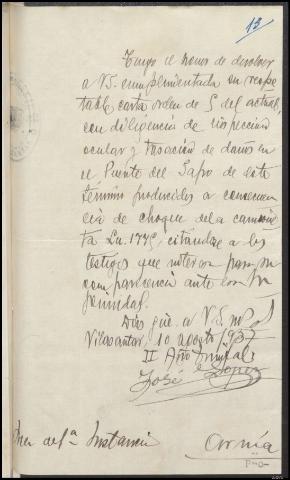 13
Tengo el honor de devolver
a VS. cumplimentada su respe
table carta orden de 5 del actual,
con diligencia de inspeccion
ocular y tasacion de daños en
el Puente del Sapo de este
término producidos a consecuen
cia de choque de la camione
ta Lu. 1775, citándose a los
testigos que
comparecencia ante
Dios gue. a V.S. ms. as
Vilasantar, 10 agosto 1937
II Año Triunfal
José Lopez
Juez de 1ª Instancia
Arzúa